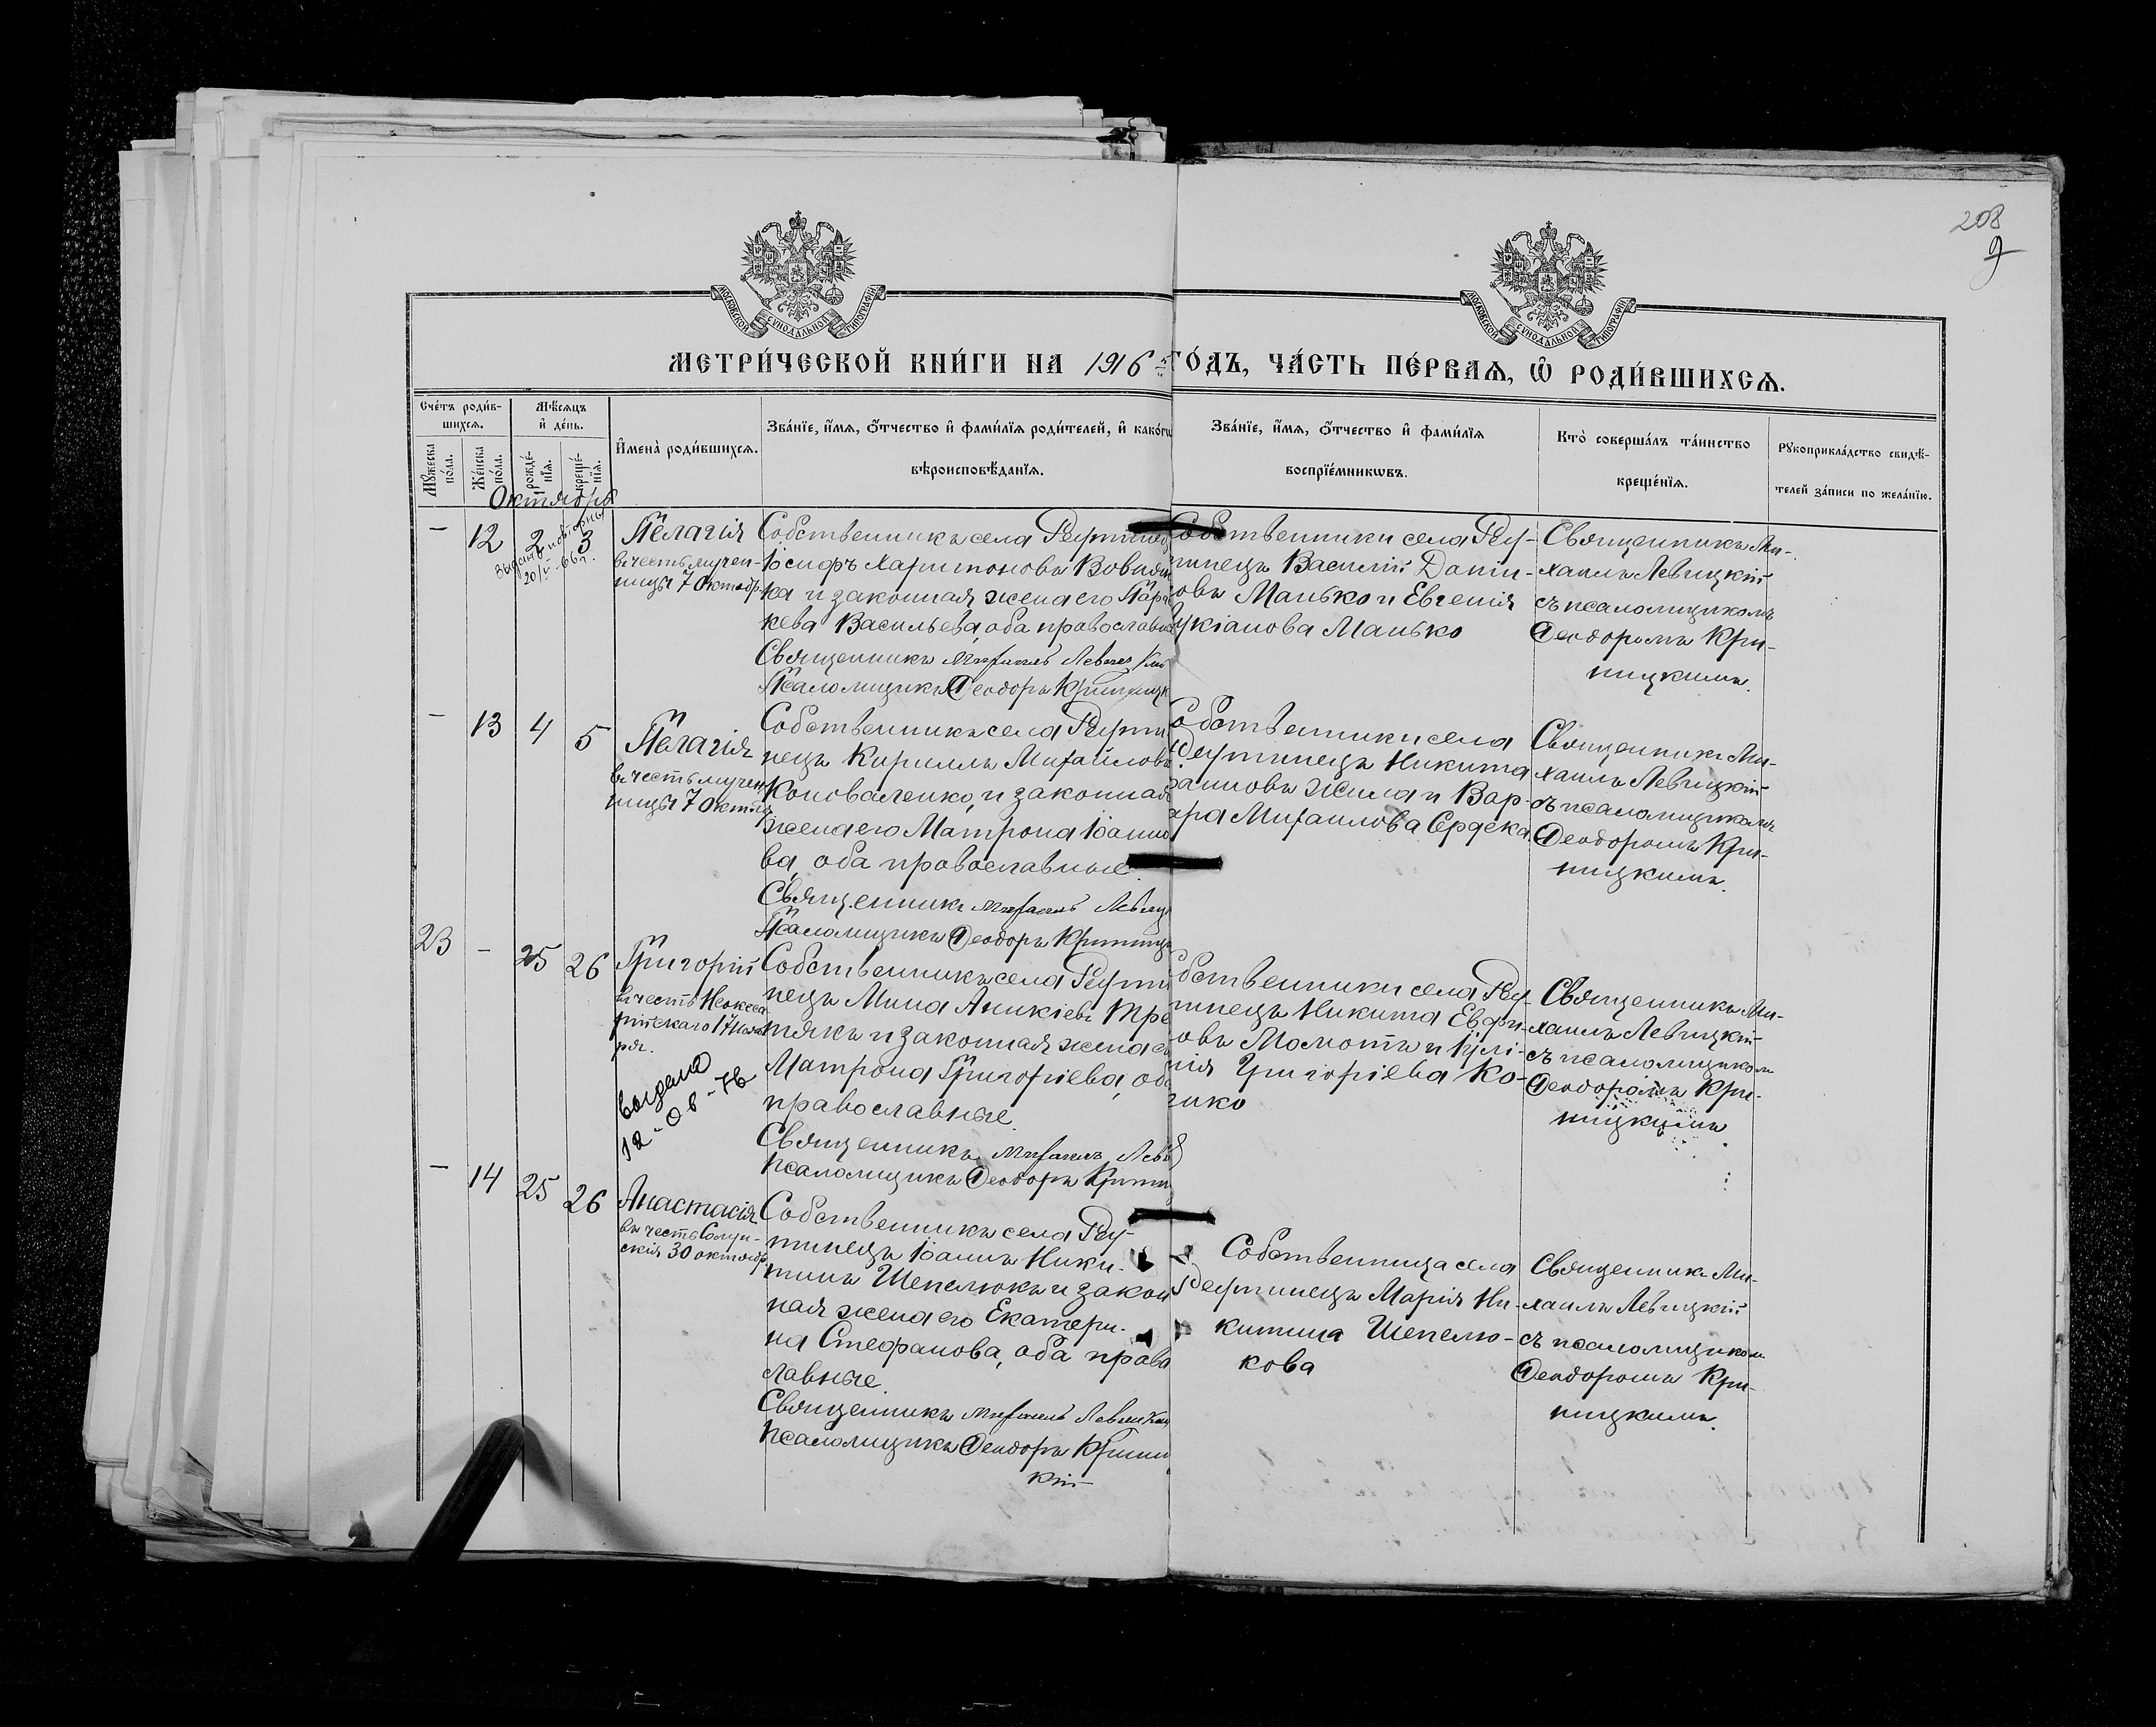 208
9
МОСКОВСКОЙ СѴНОДАЛЬНОЙ ТИПОГРАФІИ
МОСКОВСКОЙ СѴНОДАЛЬНОЙ ТИПОГРАФІИ
МЕТРИ́ЧЕСКОЙ КНИ́ГИ НА 1916 ГО́ДЪ, ЧА́СТЬ ПЕ́РВАѦ, Ѡ РОДИ́ВШИХСѦ.
Сче́тъ роди́в-
шихсѧ.
Мꙋ́жеска
по́ла.
Же́нска
по́ла.
Мѣ́сѧцъ
и҆ де́нь.
рожде́-
нїѧ.
креще́-
нїѧ.
И҆мена̀ роди́вшихсѧ.
Зва́нїе, и҆́мѧ, ѻ҆́тчество и҆ фами́лїѧ роди́телей, и҆ како́гѡ
вѣроисповѣ́данїѧ.
Зва́нїе, и҆́мѧ, ѻ҆́тчество и҆ фами́лїѧ
воспрїе́мникѡвъ.
Кто̀ соверша́лъ та́инство
креще́нїѧ.
Рꙋкоприкла́дство свидѣ́-
телей за́писи по жела́нїю.
Октября
— 12 2 3
Выдано повторны
20/V-66 г.
Пелагія
въ честь мучен-
ницы 7 Октябр.
Собственникъ села Реутинец
Іосифъ Харитоновъ Вовнян
ка и законная жена его Пара
кева Васильева, оба православн
Священникъ Михаилъ Левиц
Псаломщикъ Ѳеодоръ Криницк
Собственники села Реу-
тинецъ Василій Дани-
овъ Манько и Евгенія
укіанова Манько
Священникъ Ми-
хаилъ Левицкій
съ псаломщикомъ
Ѳеодоромъ Кри-
ницкимъ.
— 13 4 5
Пелагія
въ честь мучен
ницы 7 Октяб
Собственникъ села Реути
нецъ Кириллъ Михайловъ
Коноваленко, и законная
жена его Матрона Іоанно
ва, оба православные.
Священникъ Михаилъ Левиц
Псаломщикъ Ѳеодоръ Криниц
обственники села
Реутинецъ Никита
Жила и Вар-
ара Михаилова Сердека.
Священникъ Ми-
хаилъ Левицкій
съ псаломщикомъ
Ѳеодоромъ Кри-
ницкимъ.
23 — 25 26
Григорій
въ честь Неокеса
рійскаго 17 Нояб
ря.
выдано
12-08-76
Собственникъ села Реути
нецъ Мина Аникіевъ Тре
тякъ и законная жена е
Матрона Григоріева, оба
православные.
Священникъ Михаилъ Лев
Псаломщикъ Ѳеодоръ Крини
бственники села Реу-
тинецъ Никита Евфи-
овъ Момотъ и Іулі-
нія Григоріева Ко-
Священникъ Ми-
хаилъ Левицкій
съ псаломщиком
Ѳеодоромъ Кри-
ницкимъ
— 14 25 26
Анастасія
въ честь Солун-
скія 30 октябр
Собственникъ села Реу-
тинецъ Іоаннъ Ники-
тинъ Шепелюкъ и закон
ная жена его Екатери-
на Стефанова, оба право
лавные.
Священникъ Михаилъ Левицкій
Псаломщикъ Ѳеодоръ Криниц
кій
Собственница села
Реутинецъ Марія Ни-
китина Шепелю-
кова
Священникъ Ми-
хаилъ Левицкій
съ псаломщиком
Ѳеодоромъ Кри-
ницкимъ.